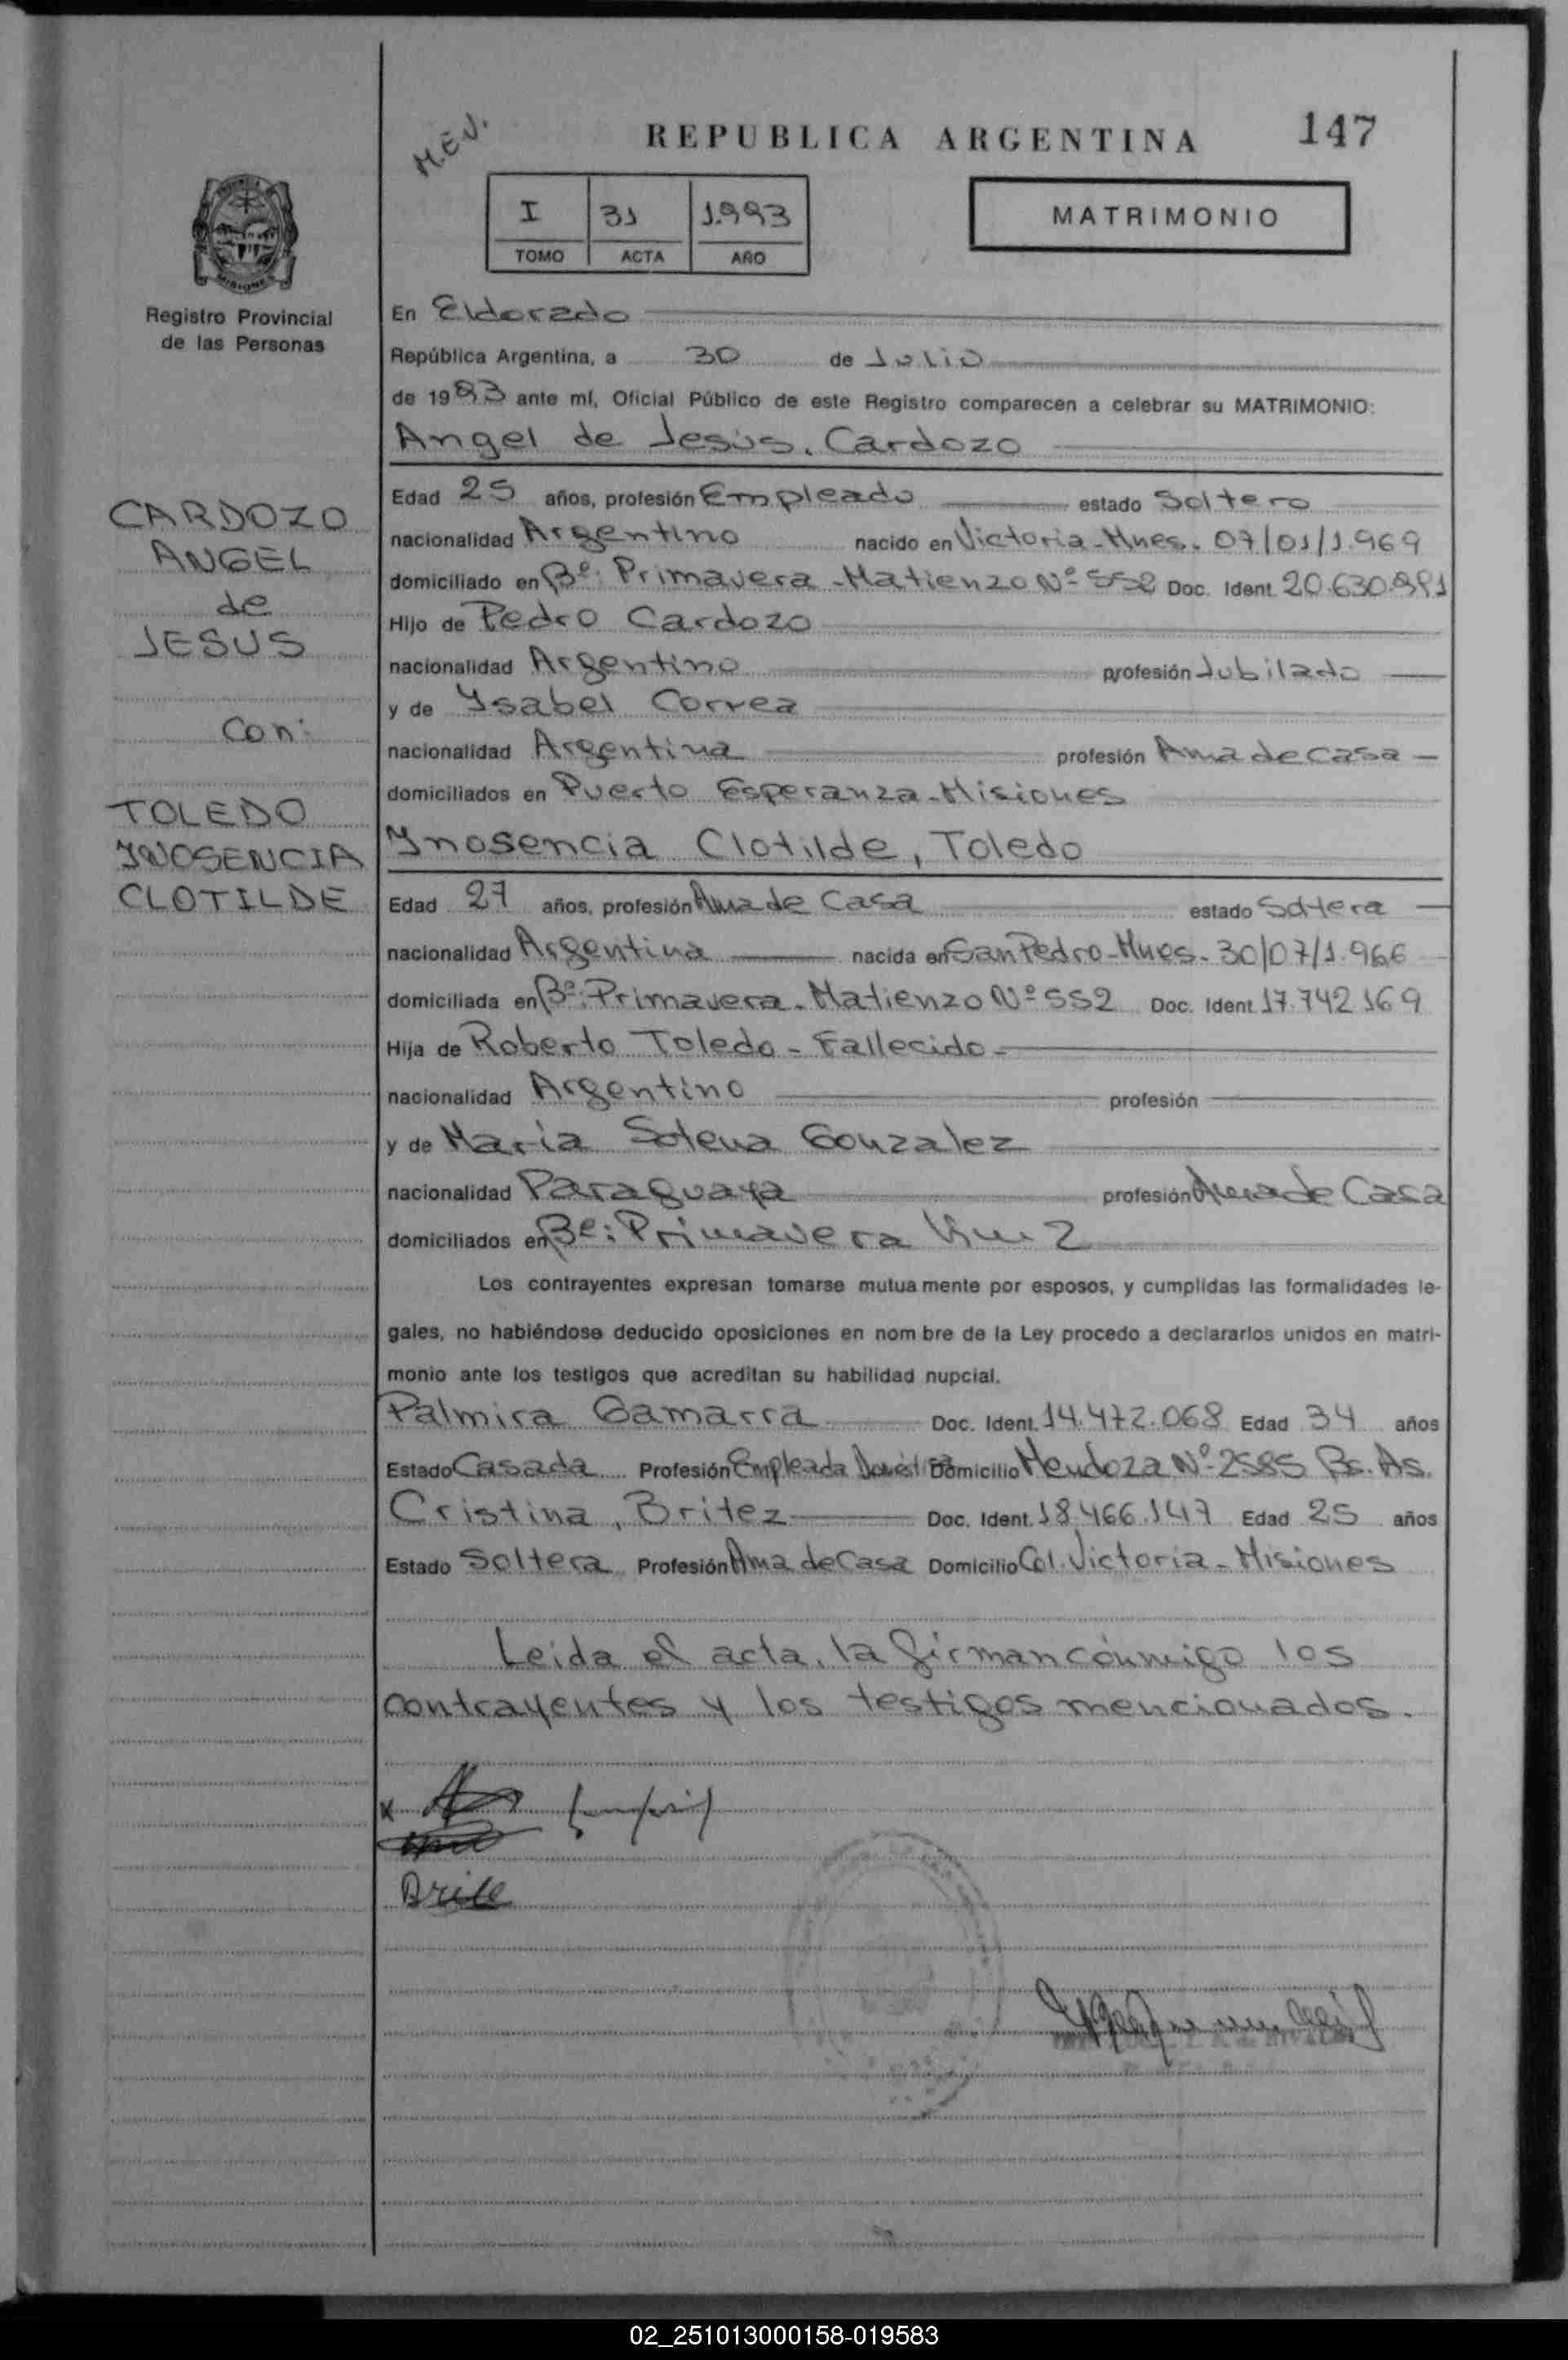 M.E.V.
REPUBLICA ARGENTINA
147
I 31 1.993
TOMO ACTA AÑO
MATRIMONIO
MISIONES
Registro Provincial
de las Personas
En Eldorado
República Argentina, a 30 de Julio
de 1993 ante mí, Oficial Público de este Registro comparecen a celebrar su MATRIMONIO:
Angel de Jesús, Cardozo
CARDOZO
ANGEL
de
JESUS
Con:
TOLEDO
YNOSENCIA
CLOTILDE
Edad 25 años, profesión Empleado estado Soltero
nacionalidad Argentino nacido en Victoria-Mnes. 07/01/1.969
domiciliado en Bº: Primavera-Matienzo Nº 552 Doc. Ident. 20.630.891
Hijo de Pedro Cardozo
nacionalidad Argentino profesión Jubilado
y de Ysabel Correa
nacionalidad Argentina profesión Ama de casa
domiciliados en Puerto Esperanza-Misiones
Ynosencia Clotilde, Toledo
Edad 27 años, profesión Ama de Casa estado Soltera
nacionalidad Argentina nacida en San Pedro-Mnes- 30/07/1.966
domiciliada en Bº: Primavera. Matienzo Nº 552 Doc. Ident. 17.742.169
Hija de Roberto Toledo - Fallecido-
nacionalidad Argentino profesión
y de Maria Gonzalez
nacionalidad Paraguaya profesión Ama de Casa
domiciliados en Bº: Primavera Km 2
Los contrayentes expresan tomarse mutuamente por esposos, y cumplidas las formalidades le-
gales, no habiéndose deducido oposiciones en nombre de la Ley procedo a declararlos unidos en matri-
monio ante los testigos que acreditan su habilidad nupcial.
Palmira Gamarra Doc. Ident. 14.472.068 Edad 34 años
Estado Casada Profesión Empleada Doméstica Domicilio Mendoza Nº 2585 Bs. As.
Cristina, Britez Doc. Ident. 18.466.147 Edad 25 años
Estado Soltera Profesión Ama de Casa Domicilio Col. Victoria-Misiones
Leida el acta, la firman conmigo los
contrayentes y los testigos mencionados.
02_251013000158-019583